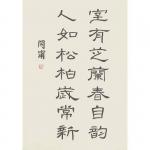 室有芝蘭春自韵
人如松柏歲常新